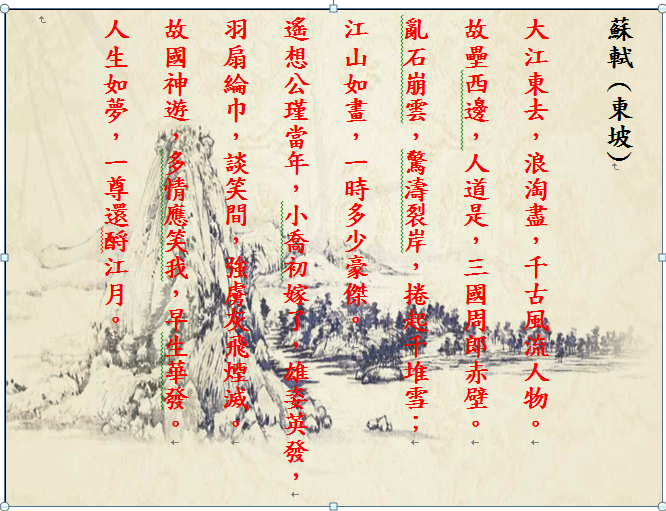 蘇軾（東坡）
大江東去，浪淘盡，千古風流人物。
故壘西邊，人道是，三國周郎赤壁。
亂石崩雲，驚濤裂岸，捲起千堆雪；
江山如畫，一時多少豪傑。
遙想公瑾當年，小喬初嫁了，雄姿英發，
羽扇綸巾，談笑間，強虜灰飛煙滅。
故國神遊，多情應笑我，早生華發。
人生如夢，一尊還酹江月。